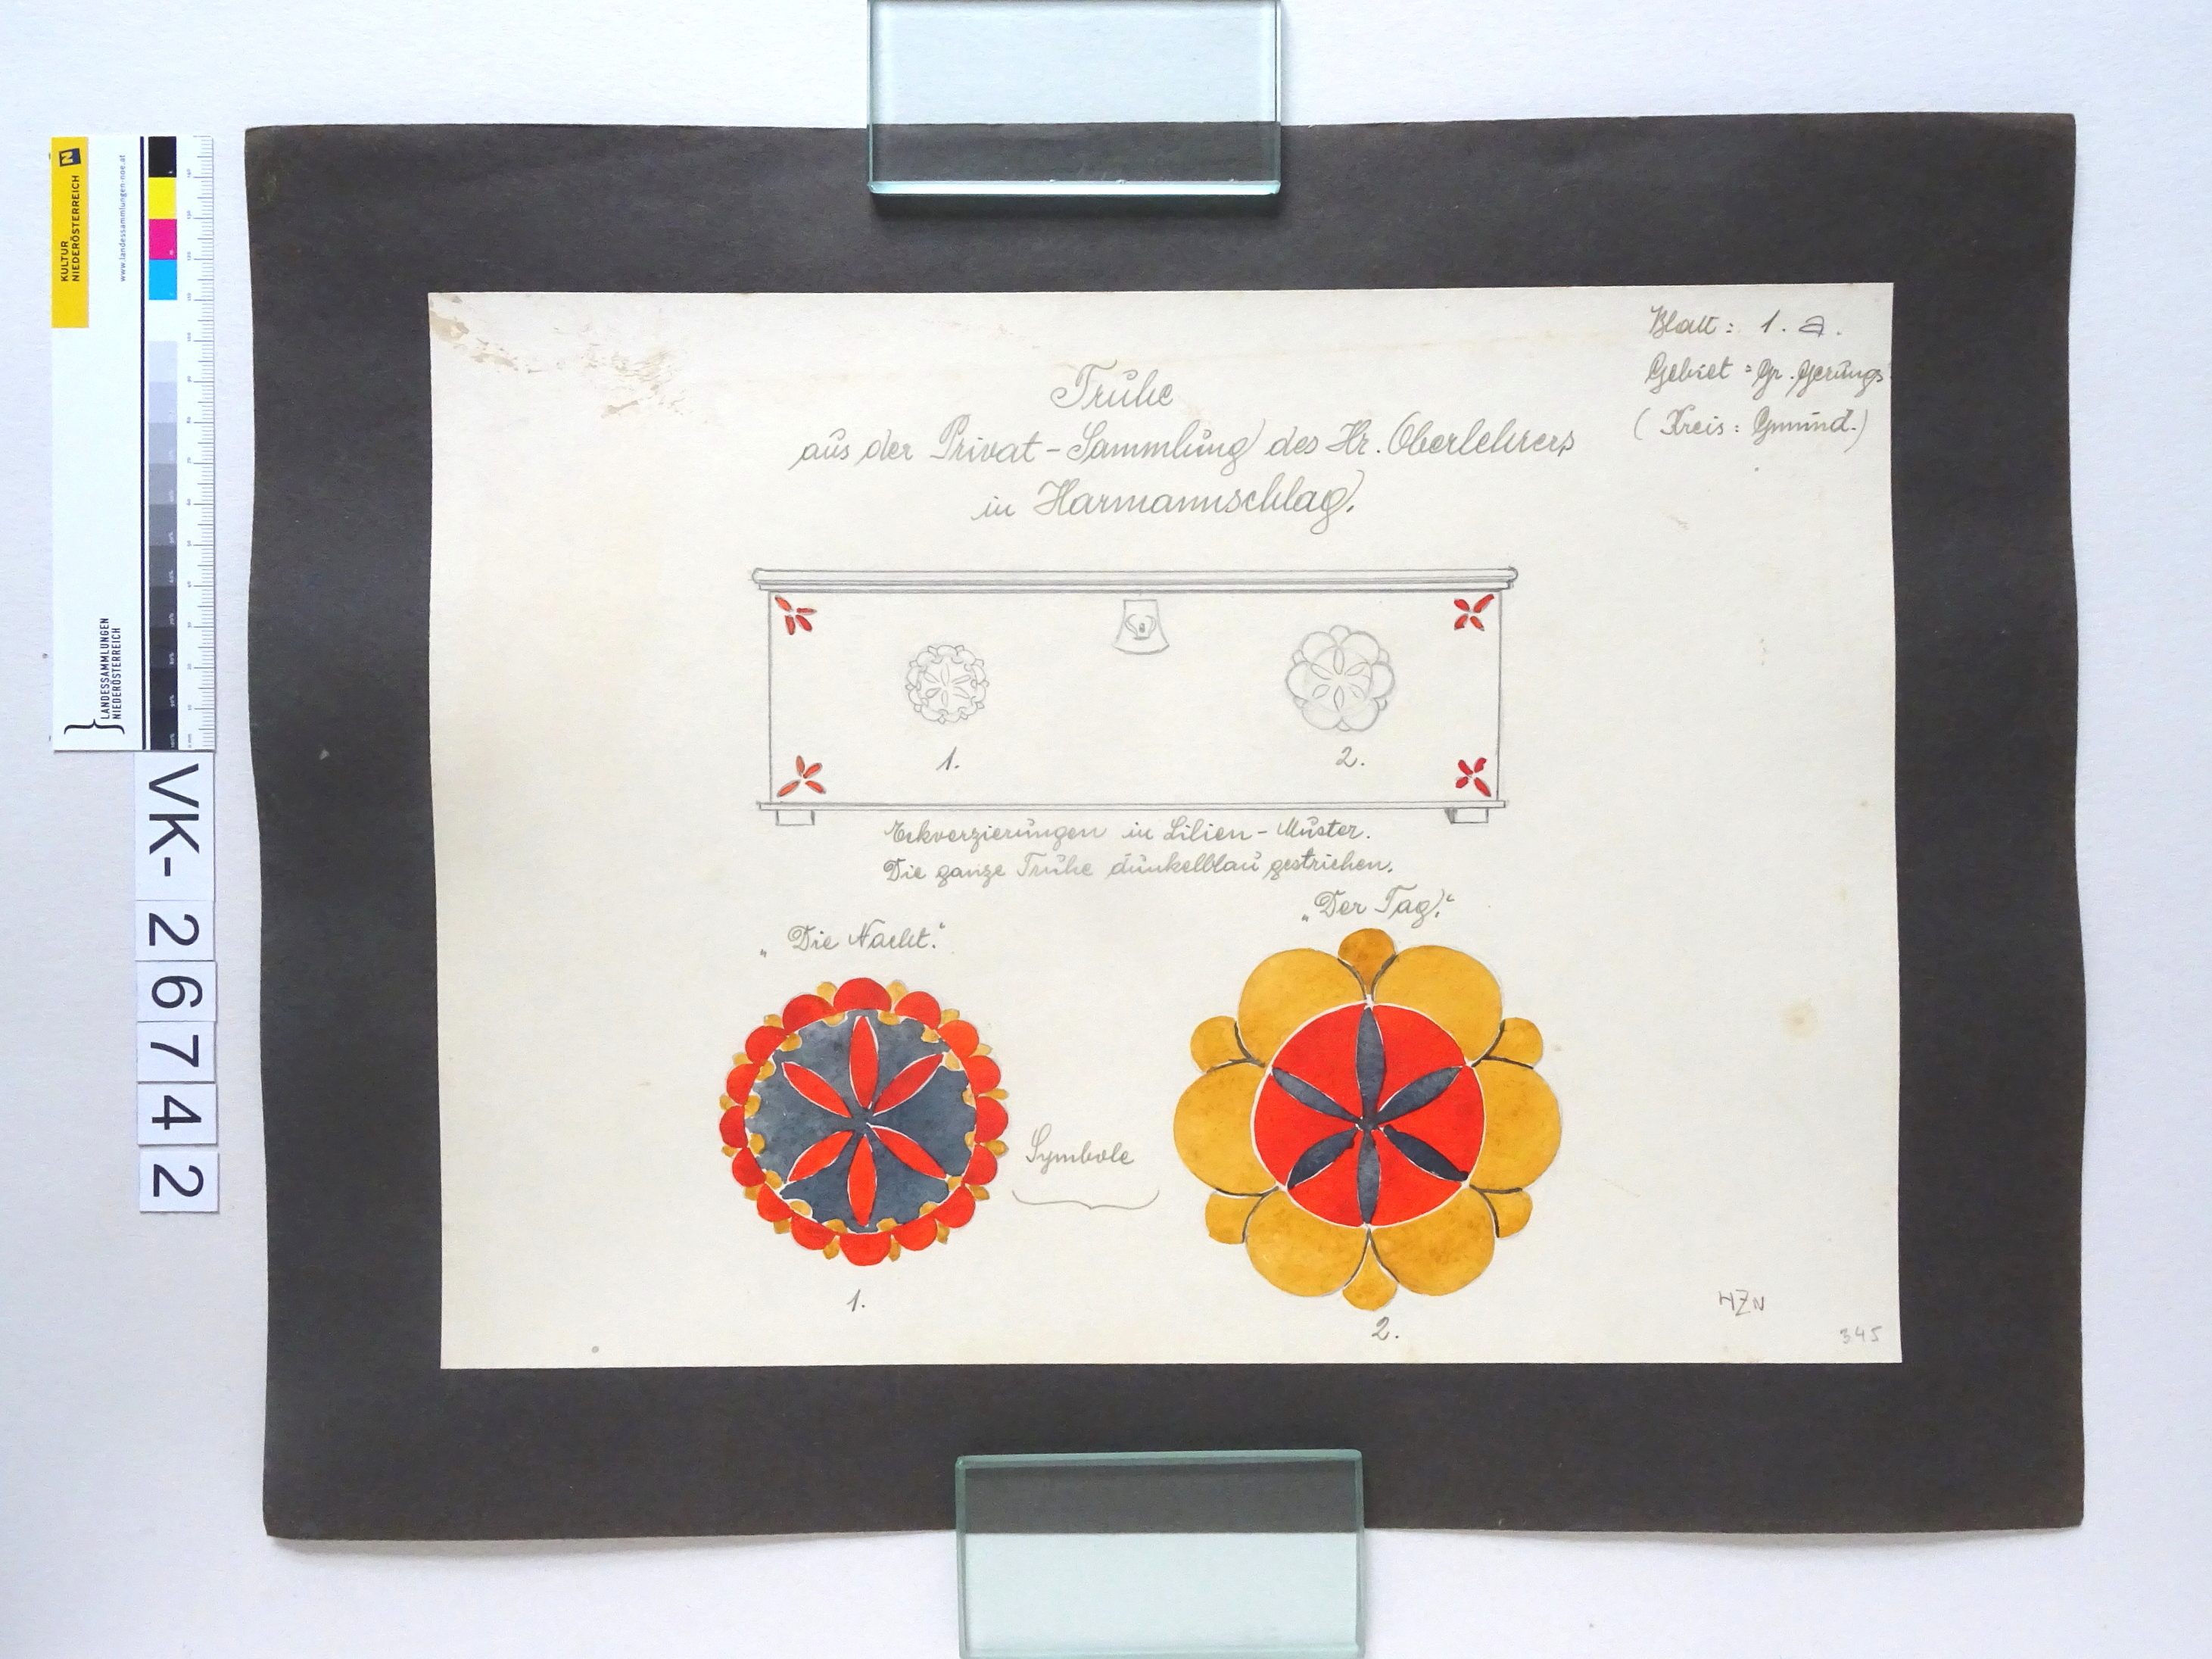 Blatt: 1. a.
Gebiet: Gr. Gerungs
(Kreis: Gmünd.)
Truhe
aus der Privat-Sammlung des Hr. Oberlehrers
in Harmannschlag.
1.
2.
Eckverzierungen in Lilien-Muster.
Die ganze Truhe dunkelblau gestrichen.
„Die Nacht."
„Der Tag."
Symbole
1.
2.
HZN
345
KULTUR
NIEDERÖSTERREICH
N
www.landessammlungen-noe.at
LANDESSAMMLUNGEN
NIEDERÖSTERREICH
VK-26742